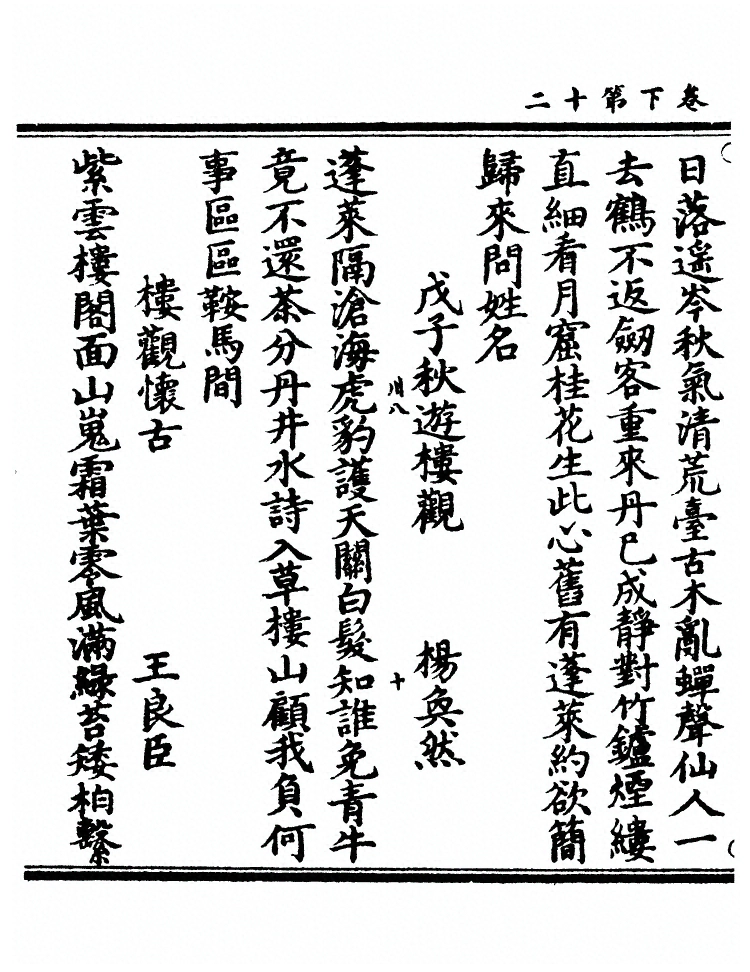 卷下第十二
日落遥岑秋氣清荒臺古木亂蟬聲仙人一
去鶴不返劒客重來丹已成靜對竹鑪煙縷
直細看月窟桂花生此心舊有蓬萊約欲簡
歸來問姓名
戊子秋遊樓觀 楊奐然
川八
十
蓬萊隔滄海虎豹護天關白髮知誰免青牛
竟不還茶分丹井水詩入草樓山顧我負何
事區區鞍馬間
樓觀懷古 王良臣
紫雲樓閣面山嵬霜葉零風滿綠苔矮柏繫